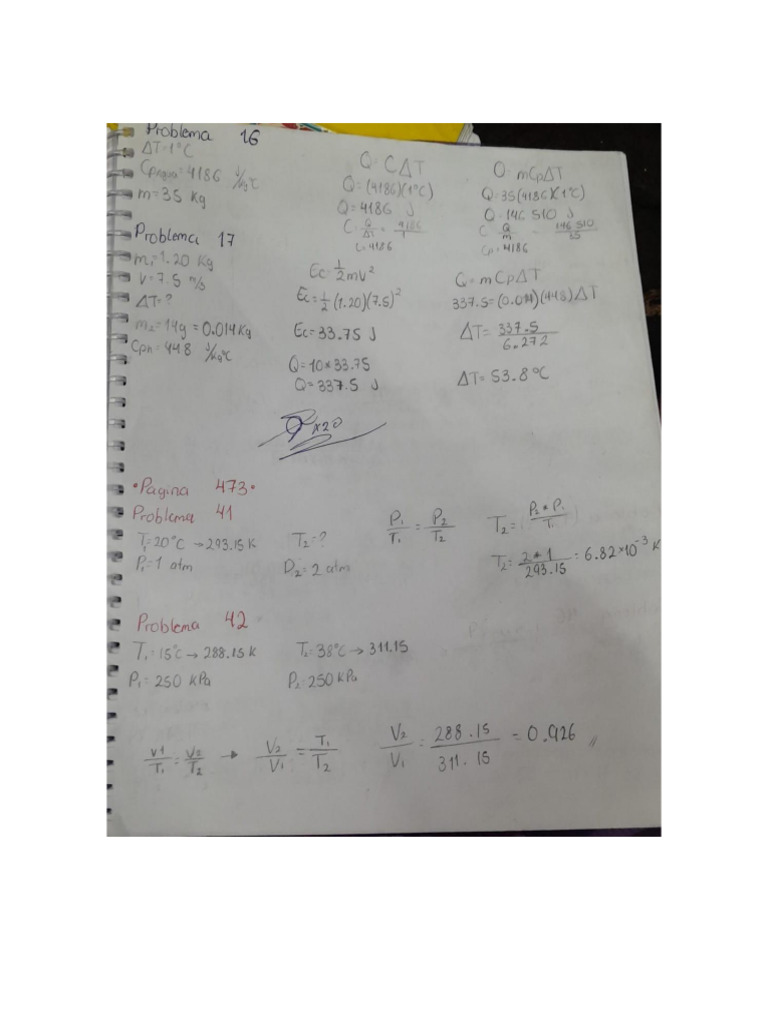 Problema 16
ΔT=1°C
Cp agua=4186 J/kg°C
m=35 Kg
Q=CΔT
Q=(4186)(1°C)
Q=4186 J
C=Q/ΔT=4186/1
C=4186
Q=mCpΔT
Q=35(4186)(1°C)
Q=146 510 J
C Q/m = 146 510/35
Cp=4186
Problema 17
m₁=1.20 Kg
V=7.5 m/s
ΔT=?
m₂=14g=0.014Kg
Cpn=448 J/kg°C
Ec=1/2mv²
Ec=1/2(1.20)(7.5)²
Ec=33.75 J
Q=10*33.75
Q=337.5 J
Q=mCpΔT
337.5=(0.014)(448)ΔT
ΔT=337.5/6.272
ΔT=53.8°C
x20
•Pagina 473•
Problema 41
T₁=20°C→293.15 K
P₁=1 atm
T₂=?
P₂=2 atm
P₁/T₁=P₂/T₂
T₂=P₂*P₁/T₁
T₂=2*1/293.15=6.82*10⁻³ K
Problema 42
T₁=15°C→288.15 K
P₁=250 KPa
T₂=38°C→311.15
P₂=250 KPa
V1/T₁=V₂/T₂ → V₂/V₁=T₁/T₂
V₂/V₁=288.15/311.15=0.926 //